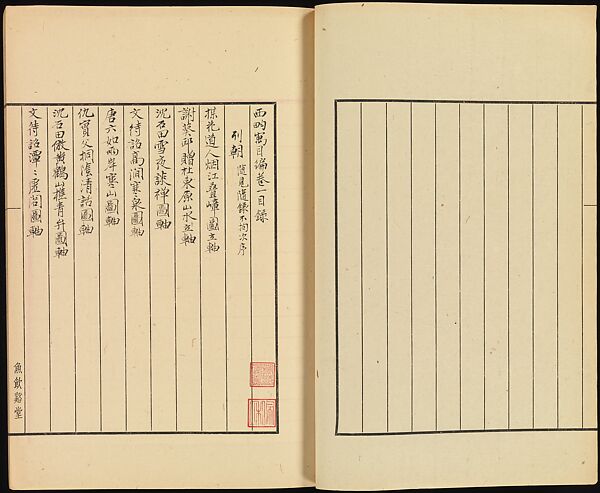 西畇寓目編卷一目錄
列朝 隨見隨錄不拘次序
楳花道人烟江疊嶂圖立軸
謝葵邱贈杜東原山水立軸
沈石田雪夜談禪圖軸
文待詔高澗寒泉圖軸
唐六如兩岸寒山圖軸
仇實父桐陰清話圖軸
沈石田倣黃鶴山樵青弁圖軸
文待詔潭〻虛閣圖軸
魚飲谿堂